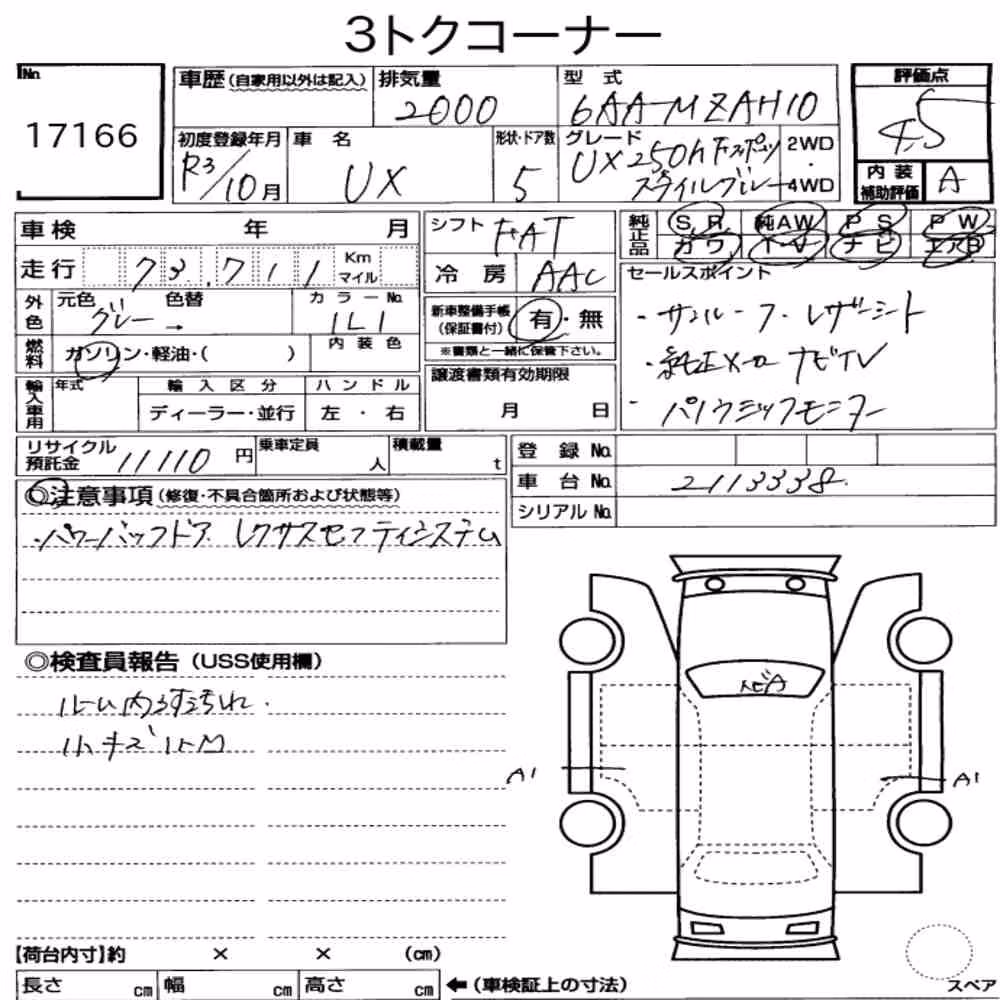 3トクコーナー
No. 17166
車歴（自家用以外は記入） 排気量 2000
型式 6AA-MZAH10
評価点 4.5
内装補助評価 A
初度登録年月 R3/10月
車名 UX
形状・ドア数 5
グレード UX250h Fスポーツ スタイルブルー
2WD・4WD
車検 年 月
シフト FAT
純正品 S.R 純AW P S P W
カワ T・V ナビ エアB
走行 73,711 Km マイル
冷房 AAC
セールスポイント
外色 元色 グレー 色替 → カラーNo. 1L1
新車整備手帳（保証書付） 有・無
※書類と一緒に保管下さい。
・サンルーフ・レザーシート
・純正メーカーナビTV
・パノラミックモニター
燃料 ガソリン・軽油・( ) 内装色
譲渡書類有効期限
月 日
輸入車用 年式 輸入区分 ハンドル
ディーラー・並行 左・右
リサイクル預託金 11110円 乗車定員 人 積載量 t
登録No.
車台No. 2113338
シリアルNo.
◎注意事項（修復・不具合箇所および状態等）
・パワーバックドア レクサスセーフティシステム
◎検査員報告（USS使用欄）
ルーム内うす汚れ.
小キズ
A1
A1
【荷台内寸】約 × × (cm)
長さ cm 幅 cm 高さ cm ←（車検証上の寸法）
スペア